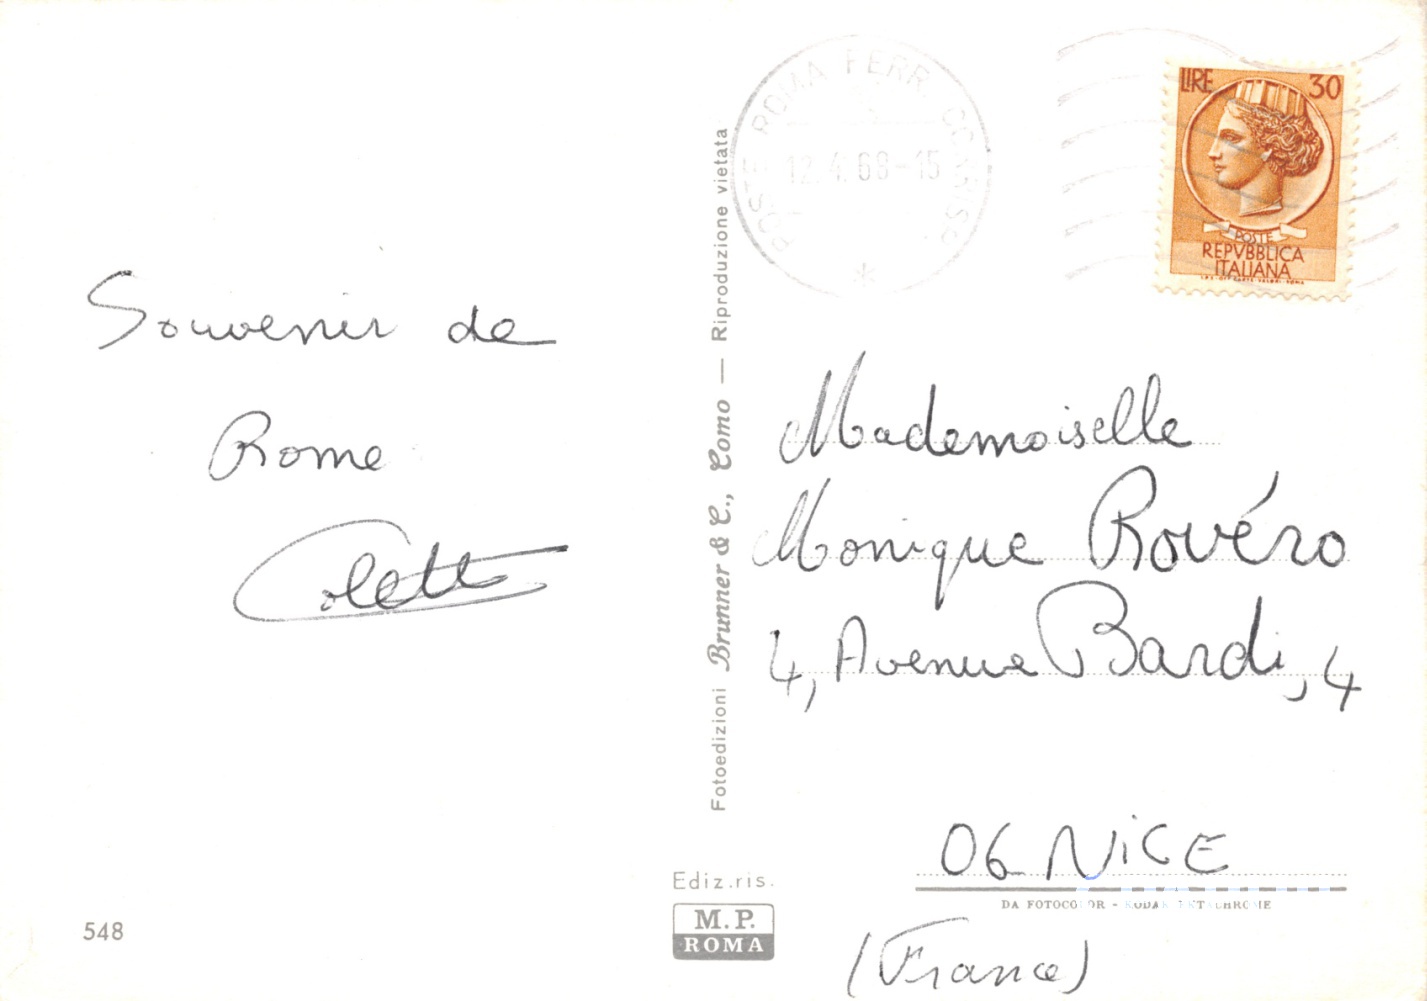 Souvenir de
Rome
Colette
548
Fotoedizioni Brunner & C., Como — Riproduzione vietata
Ediz.ris.
M.P.
ROMA
POSTE ROMA FERR. CORRISP.
12.4.68-15
LIRE 30
POSTE
REPVBBLICA
ITALIANA
Mademoiselle
Monique Rovéro
4, Avenue Bardi, 4
06 NICE
DA FOTOCOLOR - KODAK EKTACHROME
(France)